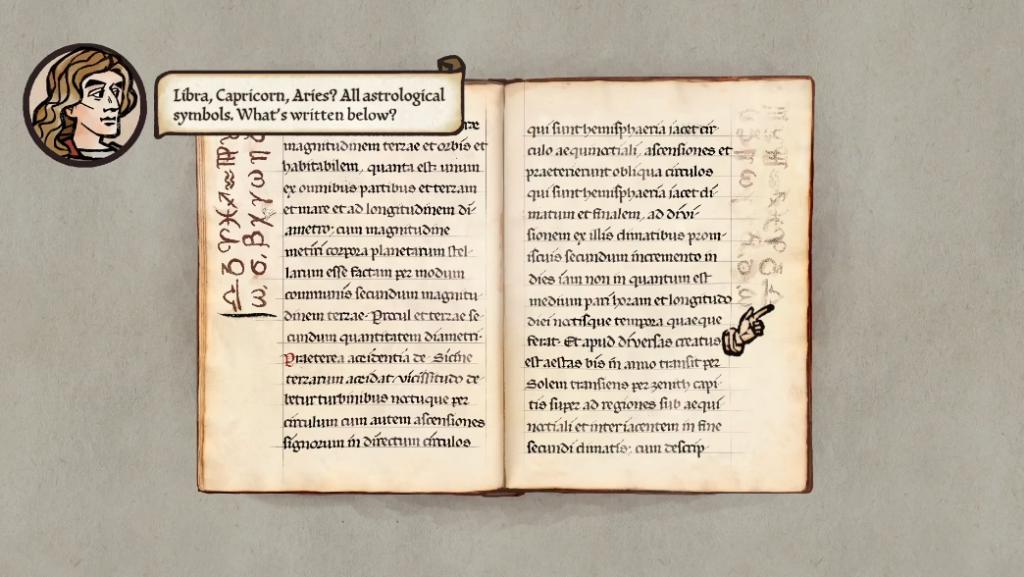 Libra, Capricorn, Aries? All astrological
symbols. What's written below?
magnitudinem terrae et orbis et
habitabilem, quanta est unum
ex omnibus partibus et terram
et mare et ad longitudinem di-
ametro; cum magnitudine
metiri corpora planetarum stel-
larum esse factam per modum
communis secundum magnitu-
dinem terrae. Procul et terrae se-
cundum quantitatem diametri.
Praeterea accidentia de
terrarum accidat vicissitudo de-
betur turbinibus noctuque per
circulum cum autem ascensiones
signorum in directum circulos
qui sunt hemisphaeria iacet cir
culo aequinoctiali, ascensiones et
praeterierunt obliqua circulos
qui sunt hemisphaeria iacet di-
matum et finalem, ad divi-
sionem ex illis climatibus prom-
iscuis secundum incremento in
dies iam non in quantum est
medium pari horam et longitudo
diei noctisque tempora quaeque
ferat. Et apud diversas creatus
est aestas bis in anno transit per
Solem transiens per zenith capi-
tis super ad regiones sub aequi
noctiali et inter iacentem in fine
secundi climatis; cum descrip
♎ ♉ ♈ ♓ ♐ ♒ ♍
ω. σ. β χ γ ω η